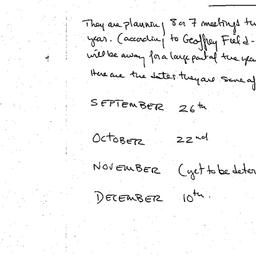 They are planning 5 or 7 meetings th
year. (according to Geoffrey Field -
will be away for a large part of the yea
Here are the dates they are sure of
SEPTEMBER 26th
OCTOBER 22nd
NOVEMBER (yet to be deter
DECEMBER 10th.